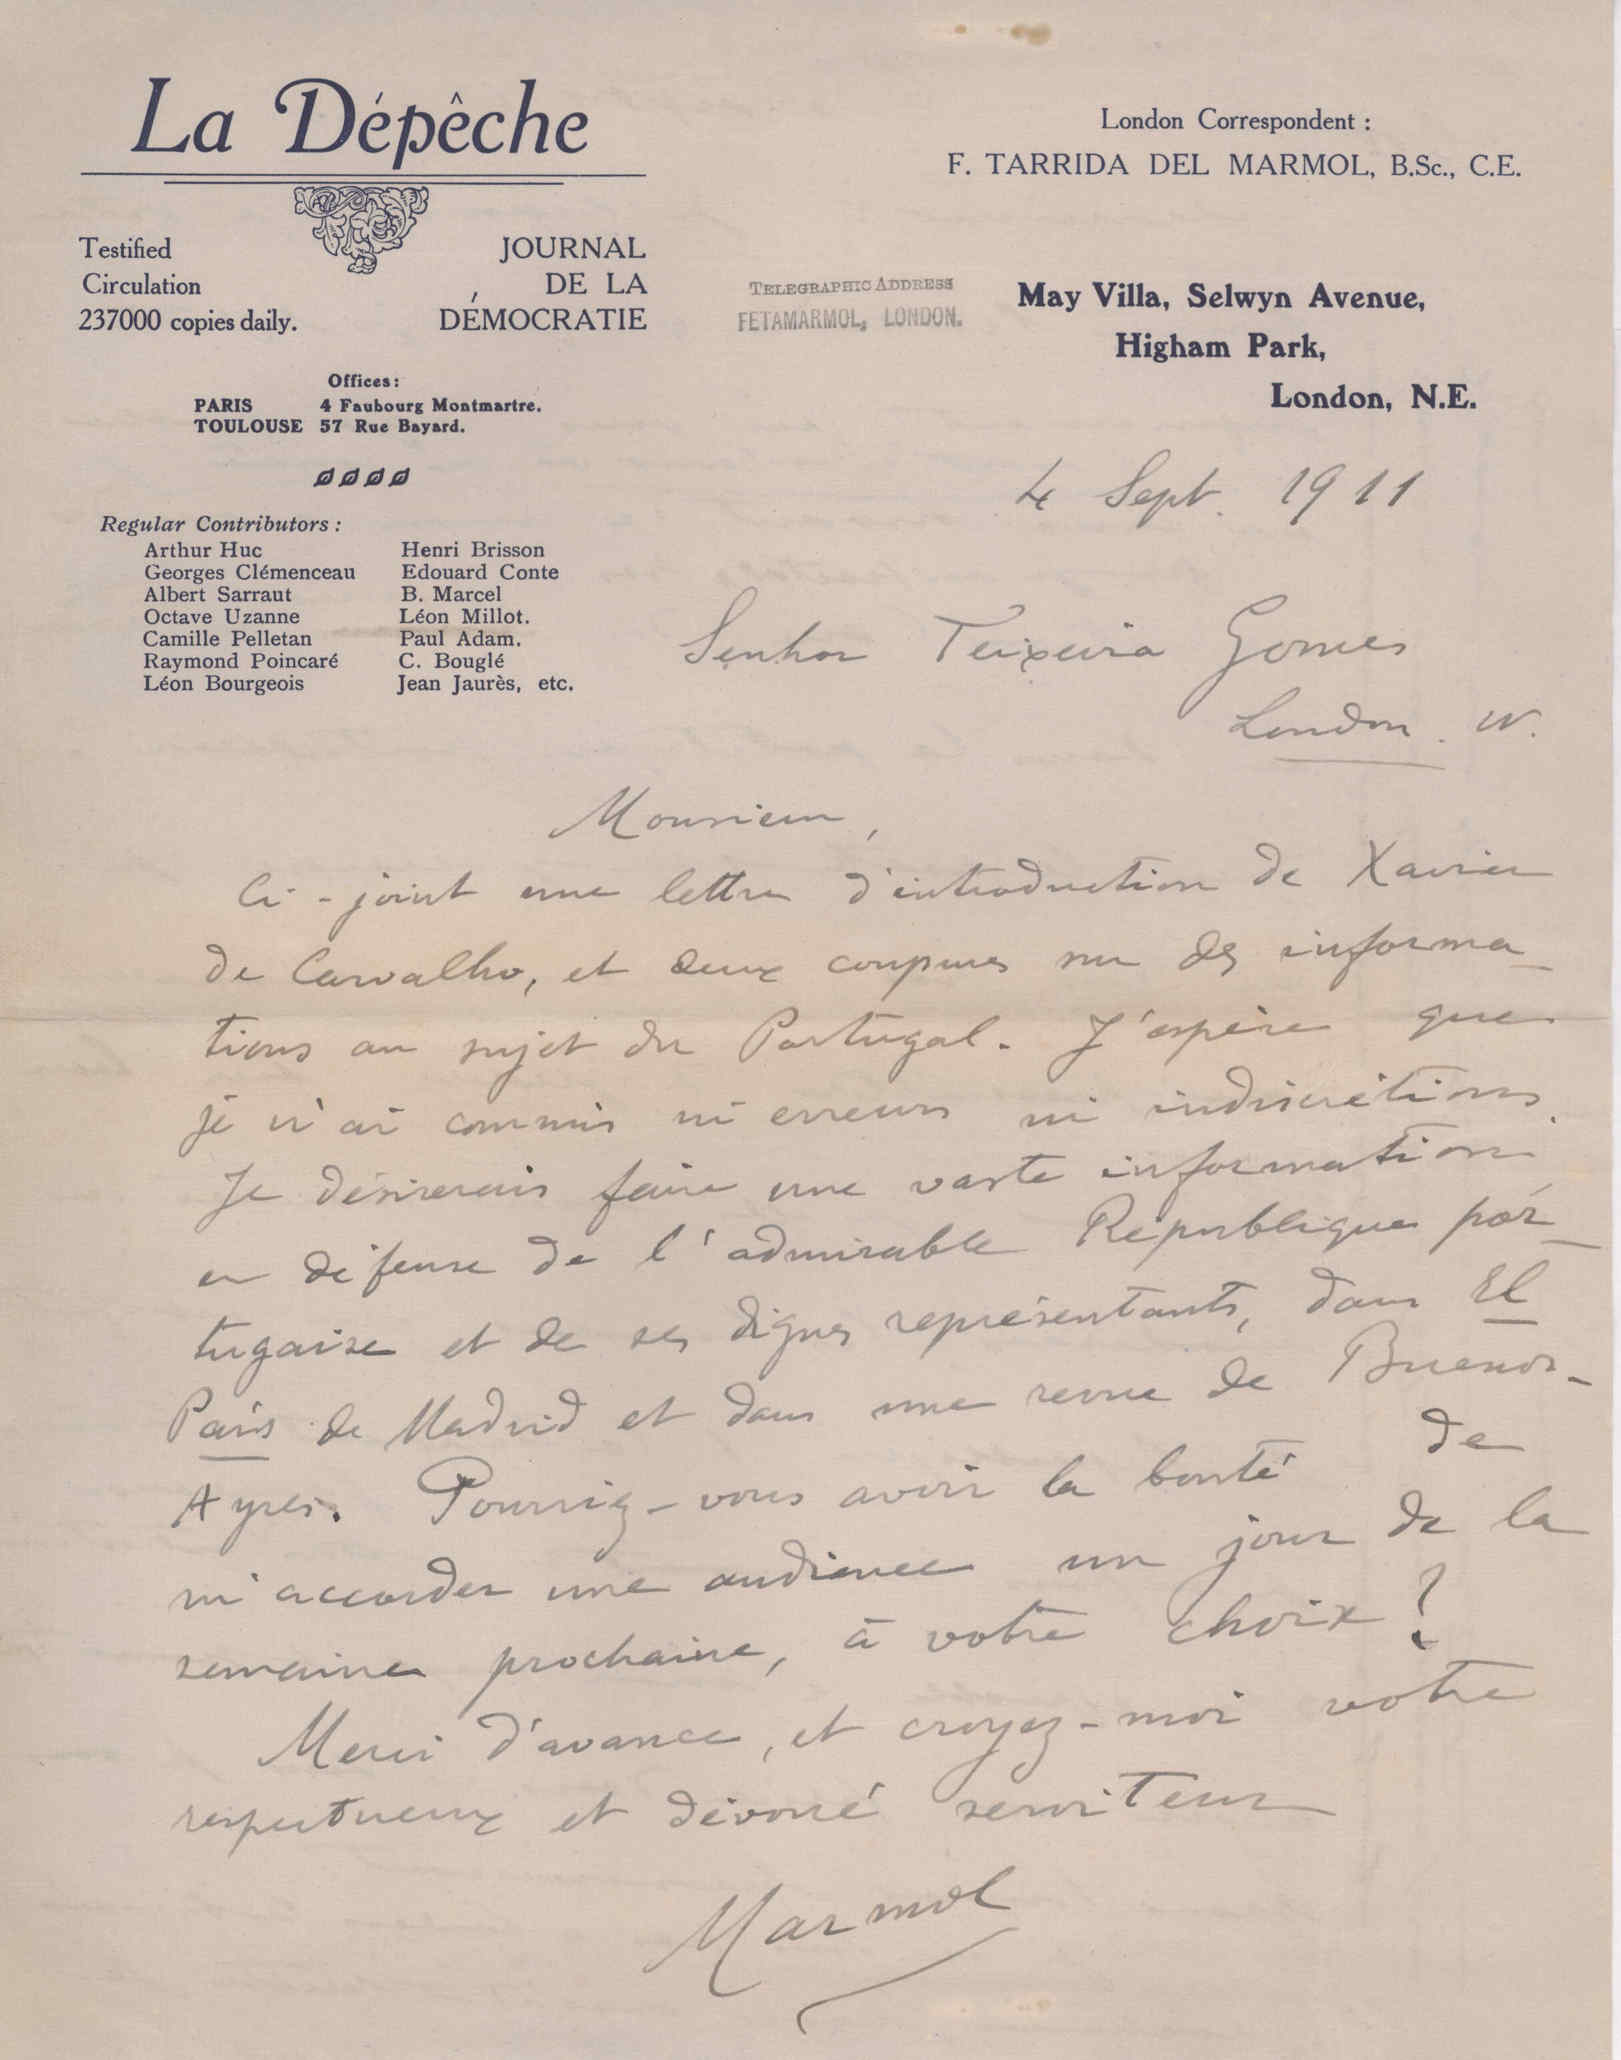 La Dépêche
Testified
Circulation
237000 copies daily.
JOURNAL
DE LA
DÉMOCRATIE
Offices:
PARIS 4 Faubourg Montmartre.
TOULOUSE 57 Rue Bayard.
Regular Contributors:
Arthur Huc
Georges Clémenceau
Albert Sarraut
Octave Uzanne
Camille Pelletan
Raymond Poincaré
Léon Bourgeois
Henri Brisson
Edouard Conte
B. Marcel
Léon Millot.
Paul Adam.
C. Bouglé
Jean Jaurès, etc.
London Correspondent:
F. TARRIDA DEL MARMOL, B.Sc., C.E.
TELEGRAPHIC ADDRESS
FETAMARMOL, LONDON.
May Villa, Selwyn Avenue,
Higham Park,
London, N.E.
4 Sept. 1911
Senhor Teixeira Gomes
London. W.
Monsieur,
Ci-joint une lettre d'introduction de Xavier
de Carvalho, et deux coupures sur des informa-
tions au sujet du Portugal. J'espère que
je n'ai commis ni erreurs ni indiscrétions.
Je désirerais faire une vaste information
en défense de l'admirable République por-
tugaise et de ses dignes représentants, dans El
País de Madrid et dans une revue de Buenos-
Ayres. Pourriez-vous avoir la bonté de
m'accorder une audience un jour de la
semaine prochaine, à votre choix?
Merci d'avance, et croyez-moi votre
respectueux et dévoué serviteur
Marmol